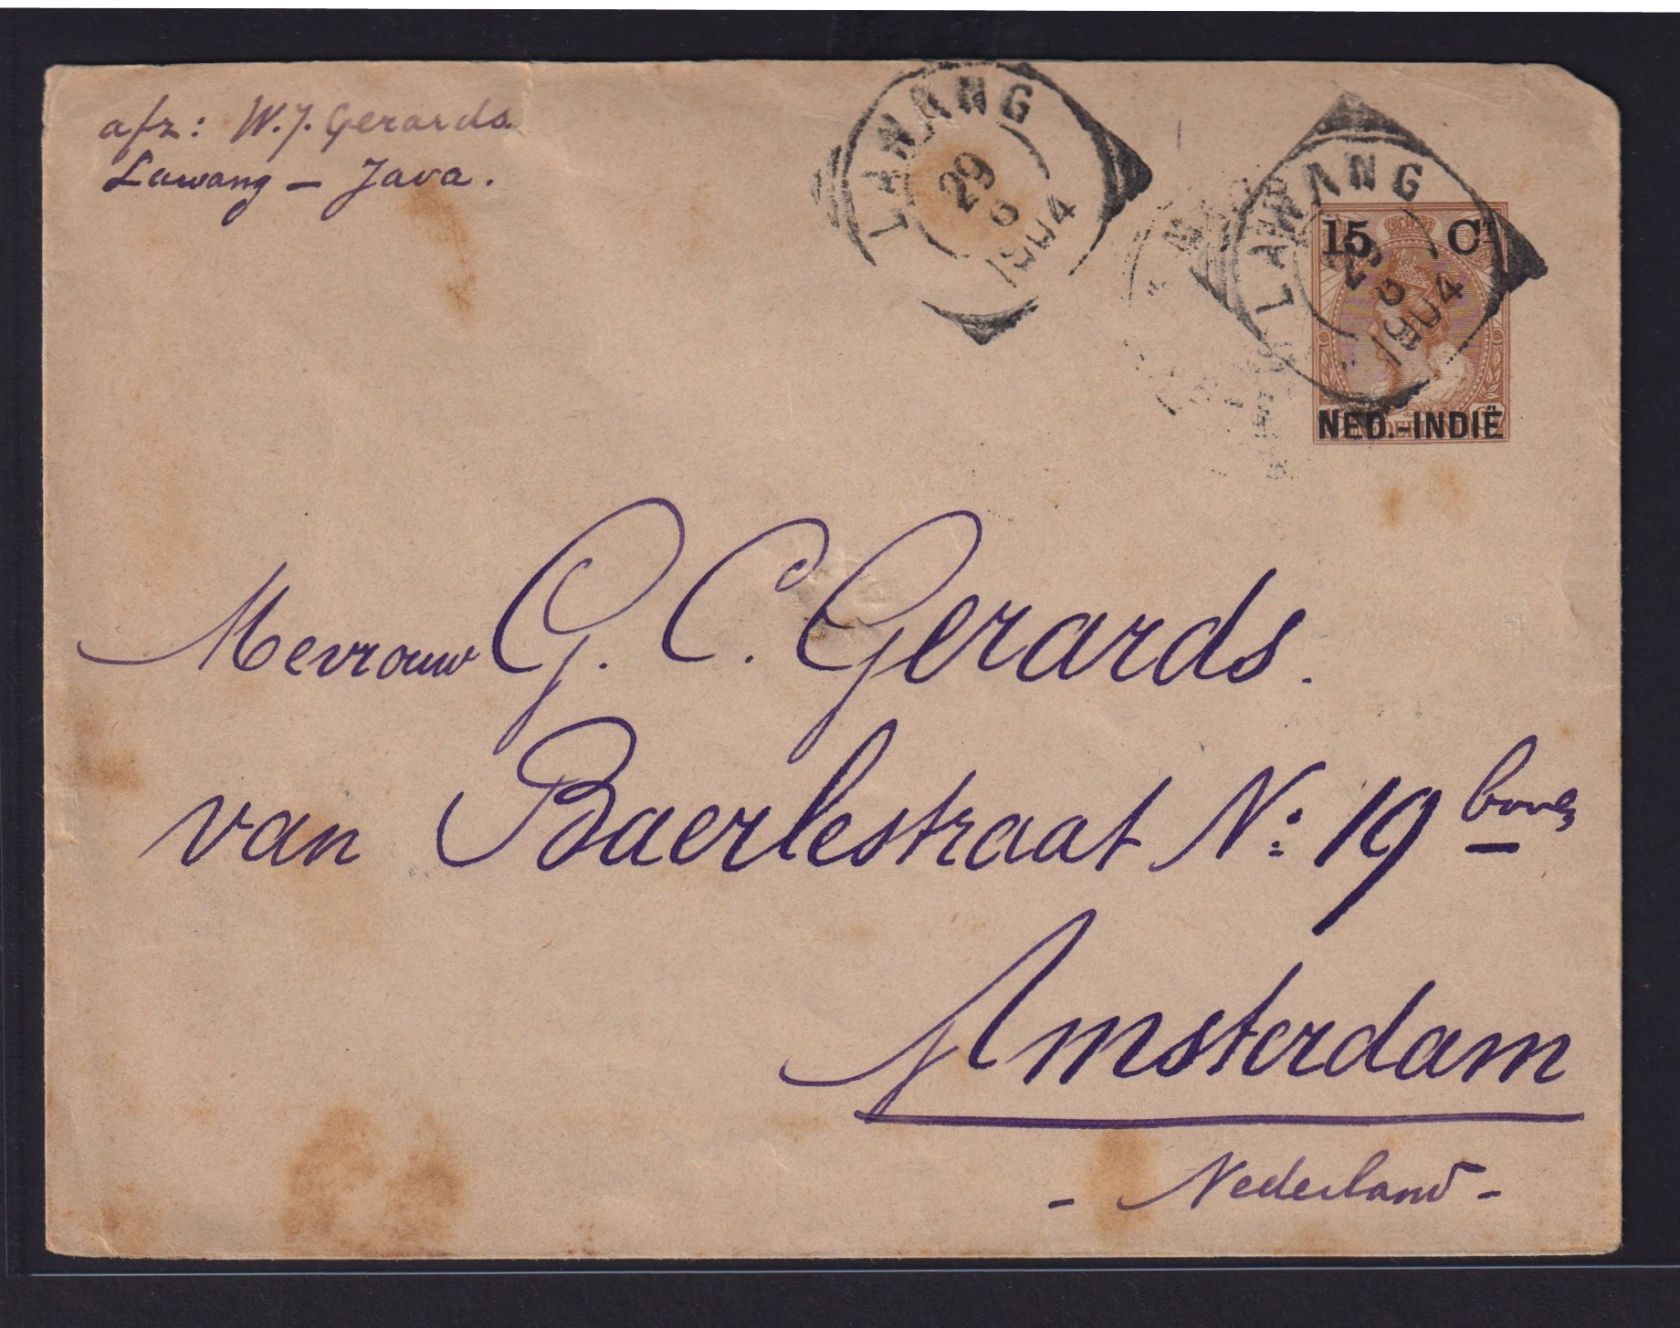 afz: W. J. Gerards
Lawang – Java.
LAWANG
29
6
1904
LAWANG
29
6
1904
15 Ct
NED.-INDIË
Mevrouw G. C. Gerards.
van Baerlestraat No: 19 boven
Amsterdam
- Nederland -